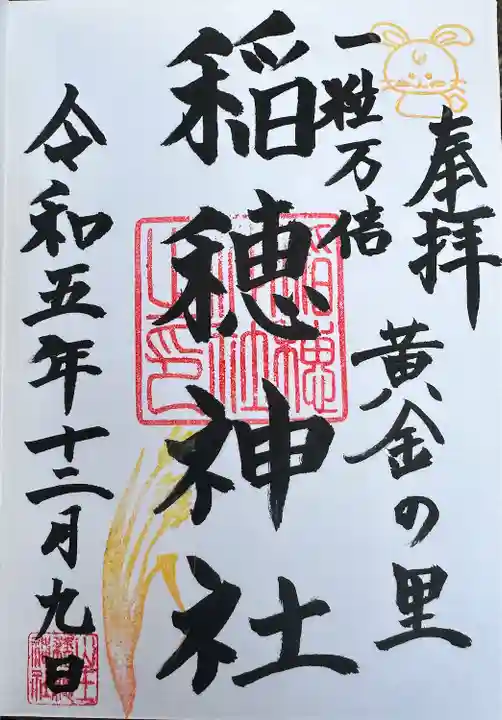 奉拝
黄金の里
一粒万倍
稲穂神社
稲穂
神社
之印
令和五年十二月九日